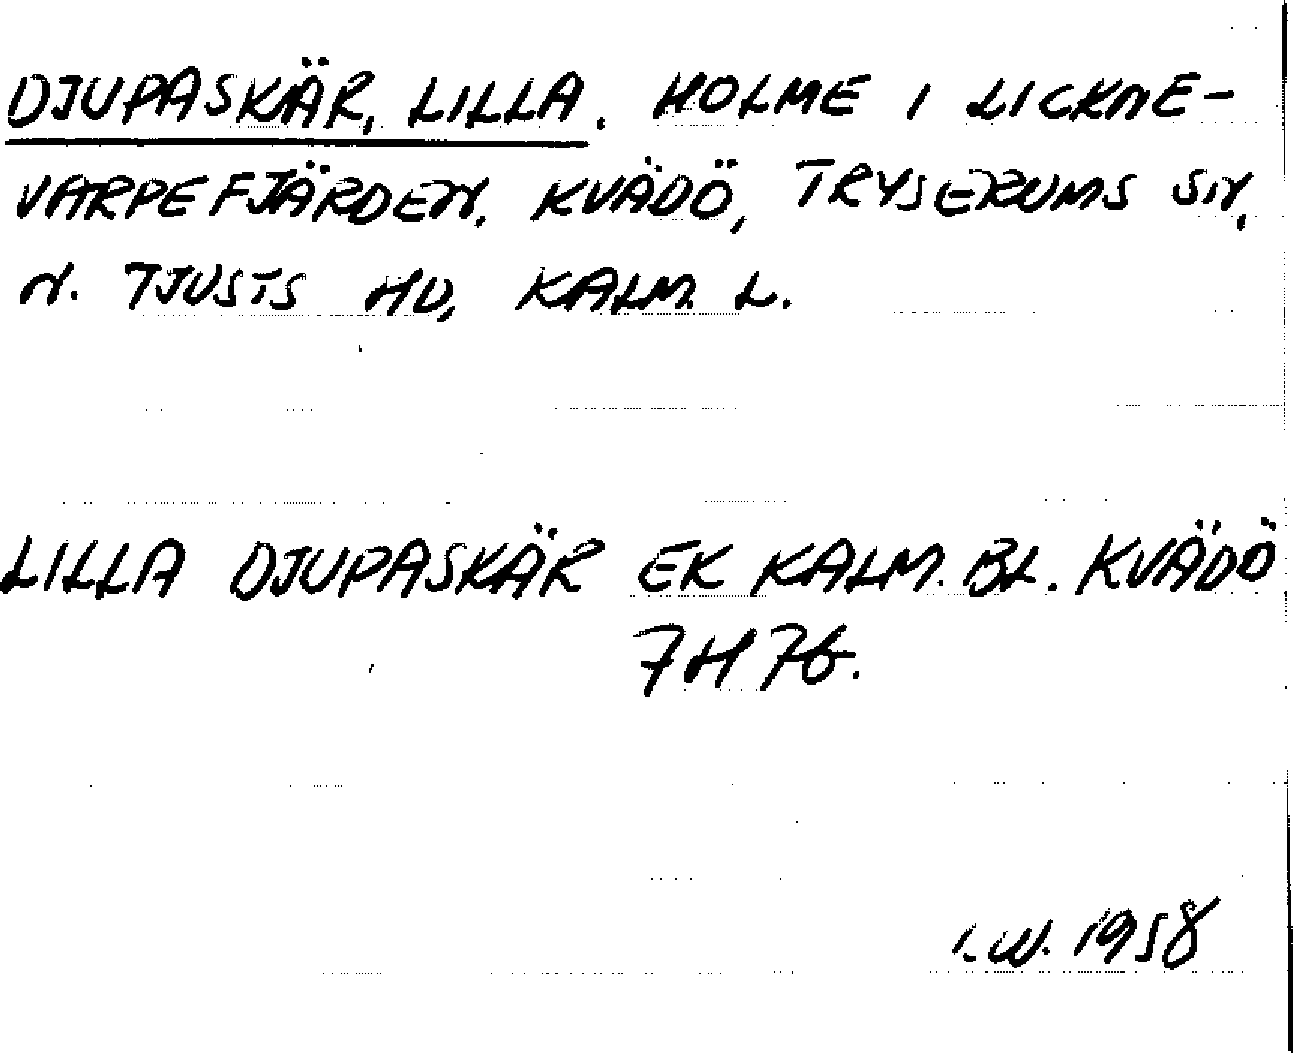 DJUPASKÄR, LILLA. HOLME I LICKNE-
VARPEFJÄRDEN. KVÄDÖ, TRYSERUMS SN,
N. TJUSTS HD, KALM. L.
LILLA DJUPASKÄR EK KALM. BL. KVÄDÖ
7H 7b.
I.W. 1958